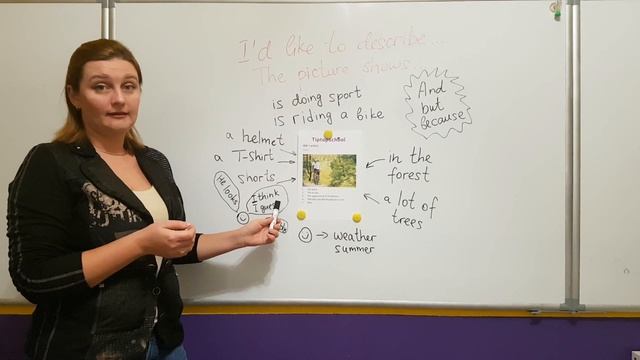 I'd like to describe...
The picture shows
is doing sport
is riding a bike
And
but
because
a helmet
a T-shirt
shorts
Tiptopschool
in the
forest
a lot of
trees
He looks
I think
I guess
→ weather
summer